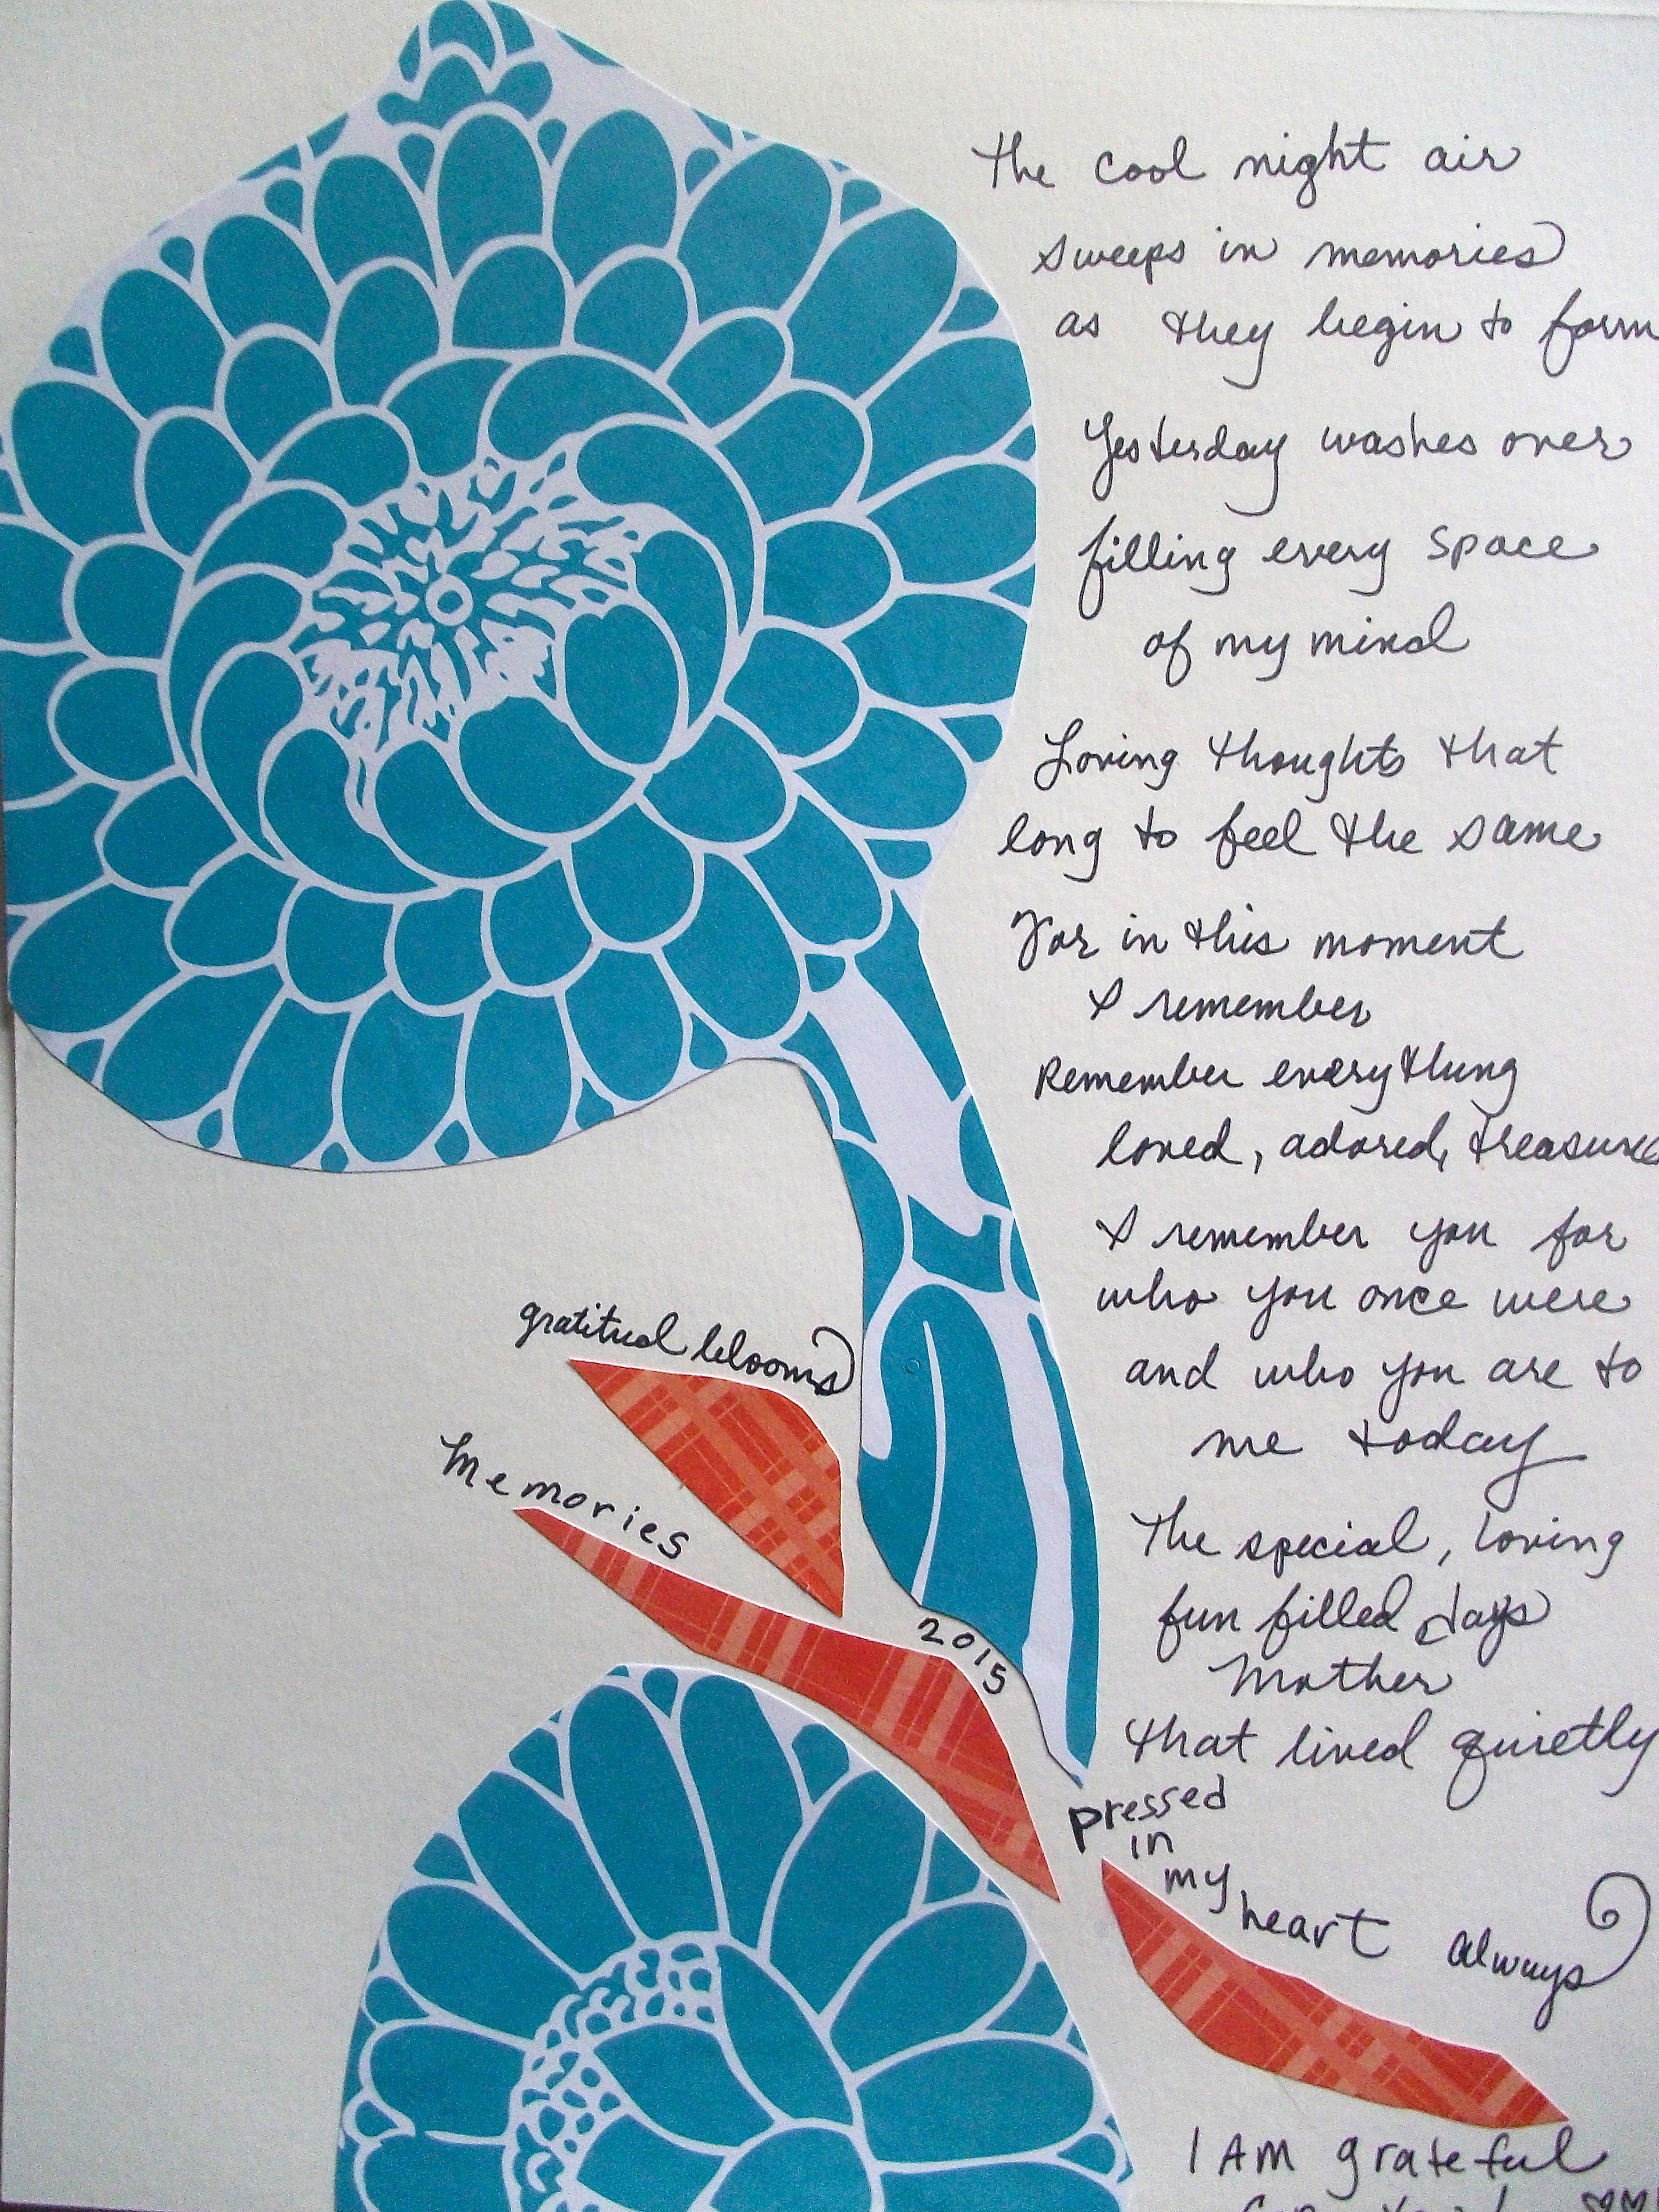 The cool night air
sweeps in memories
as they begin to form
Yesterday washes over
filling every space
of my mind
Loving thoughts that
long to feel the same
For in this moment
I remember
Remember everything
loved, adored, treasure
I remember you for
who you once were
and who you are to
me today
The special, loving
fun filled days
Mother
that lived quietly
pressed
in
my
heart always
gratitud blooms
Memories
2015
I AM grateful